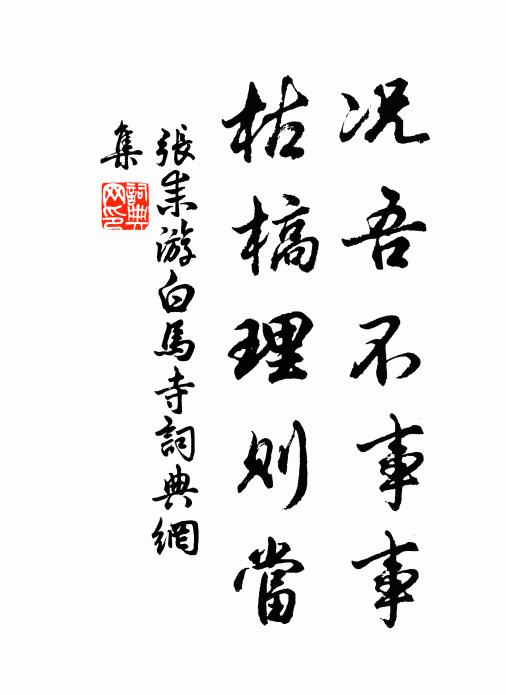 况吾不事事
枯槁理则當
張耒游白馬寺詞典網
集
詞典网印